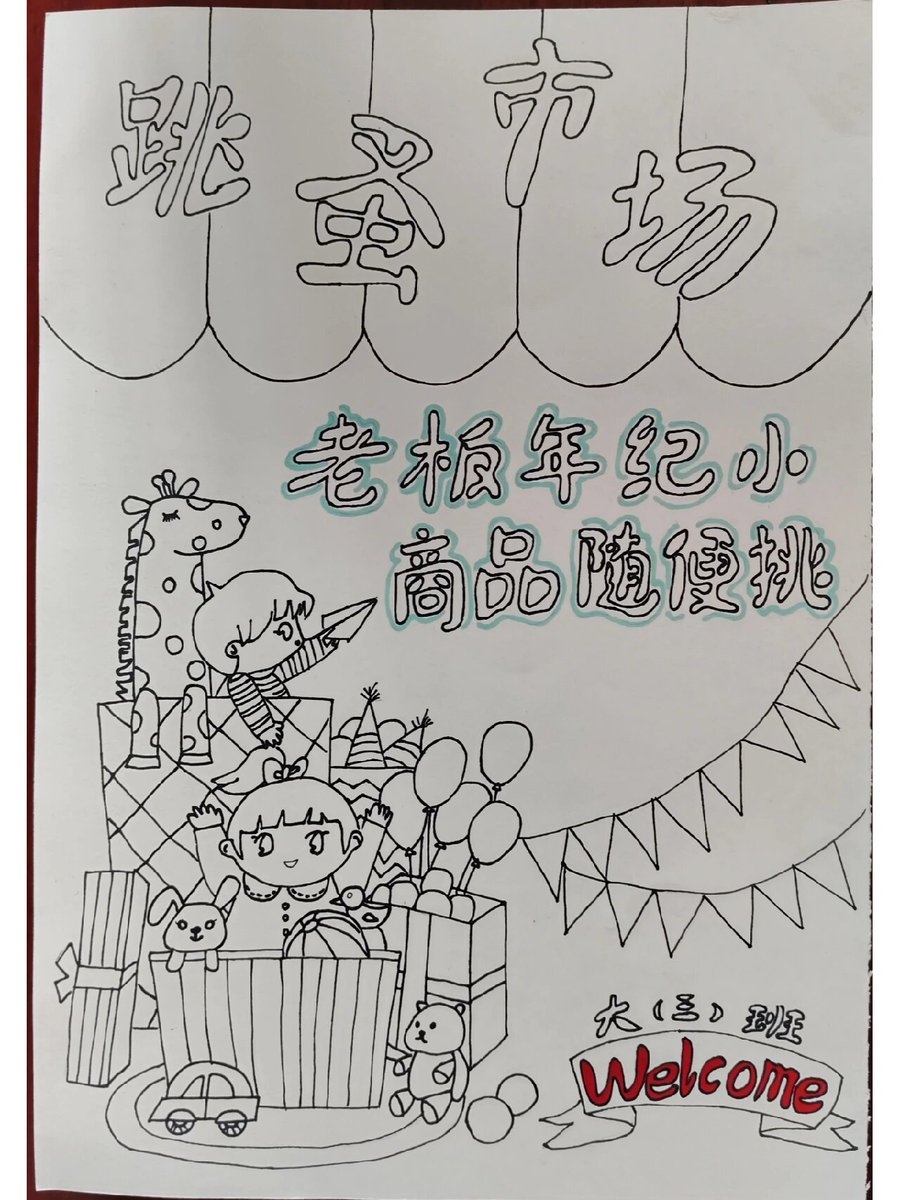 跳蚤市场
老板年纪小
商品随便挑
大（三）班
Welcome